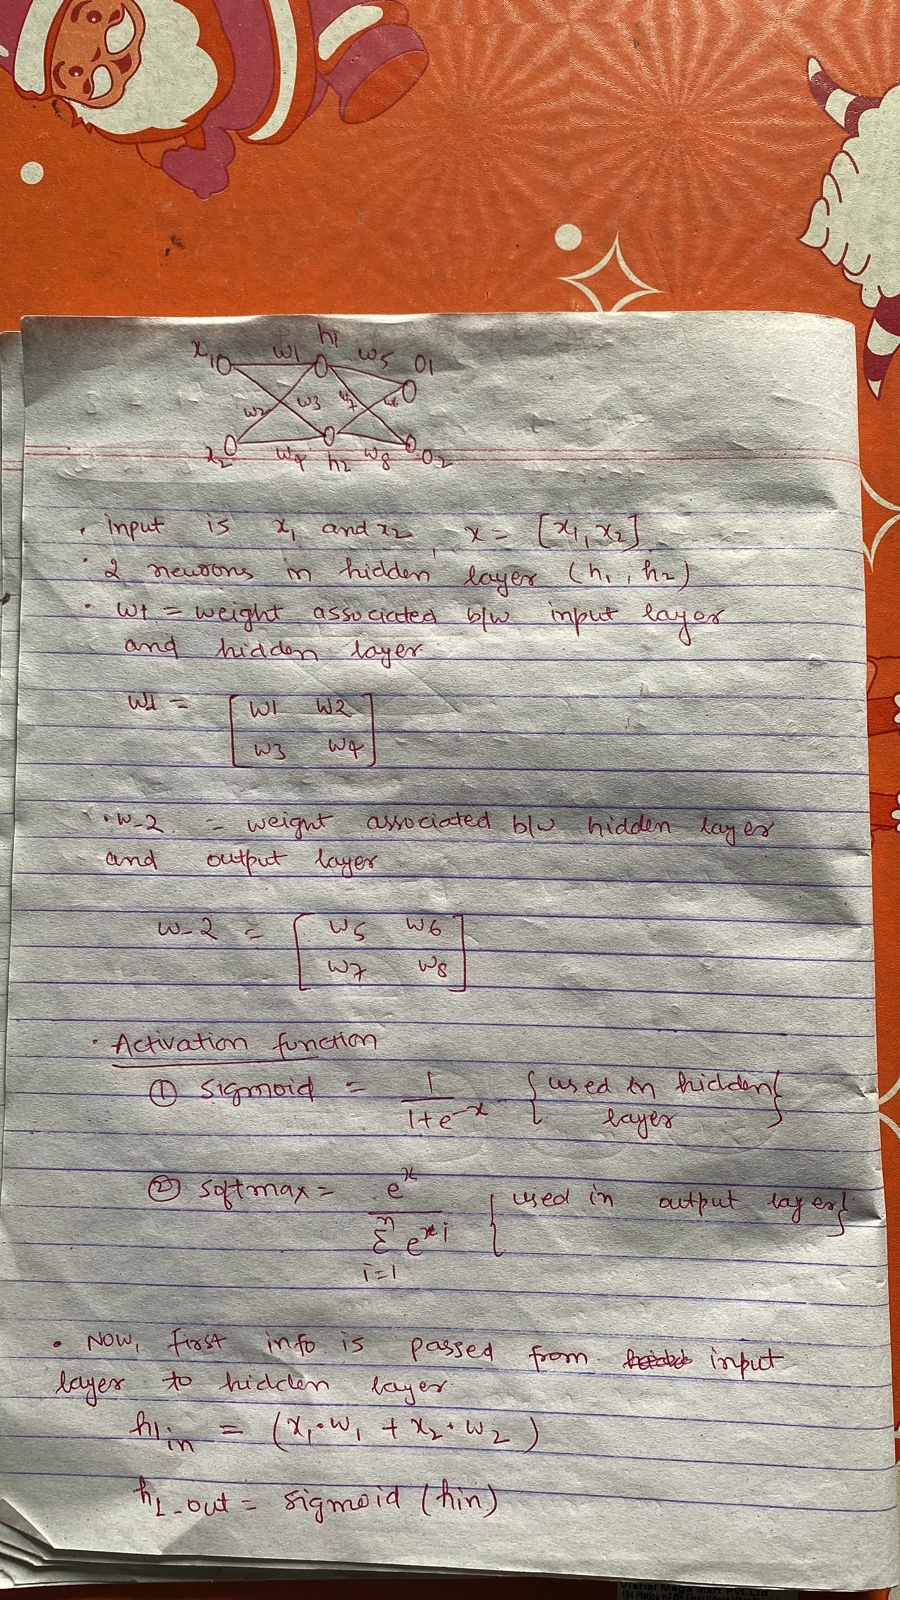 x1 w1 h1 w5 O1
w2 w3 w7 w6
x2 w4 h2 w8 O2
• Input is x1 and x2, x = [x1, x2]
• 2 neurons in hidden layer (h1, h2)
• w1 = weight associated b/w input layer
and hidden layer
w1 = [ w1 w2
w3 w4 ]
• w_2 = weight associated b/w hidden layer
and output layer
w_2 = [ w5 w6
w7 w8 ]
• Activation function
① sigmoid = 1 / (1+e^-x) {used in hidden layer}
② softmax = e^x / Σ_{i=1}^{n} e^xi {used in output layer}
• Now, first info is passed from input
layer to hidden layer
h1in = (x1·w1 + x2·w2)
h1_out = sigmoid (hin)